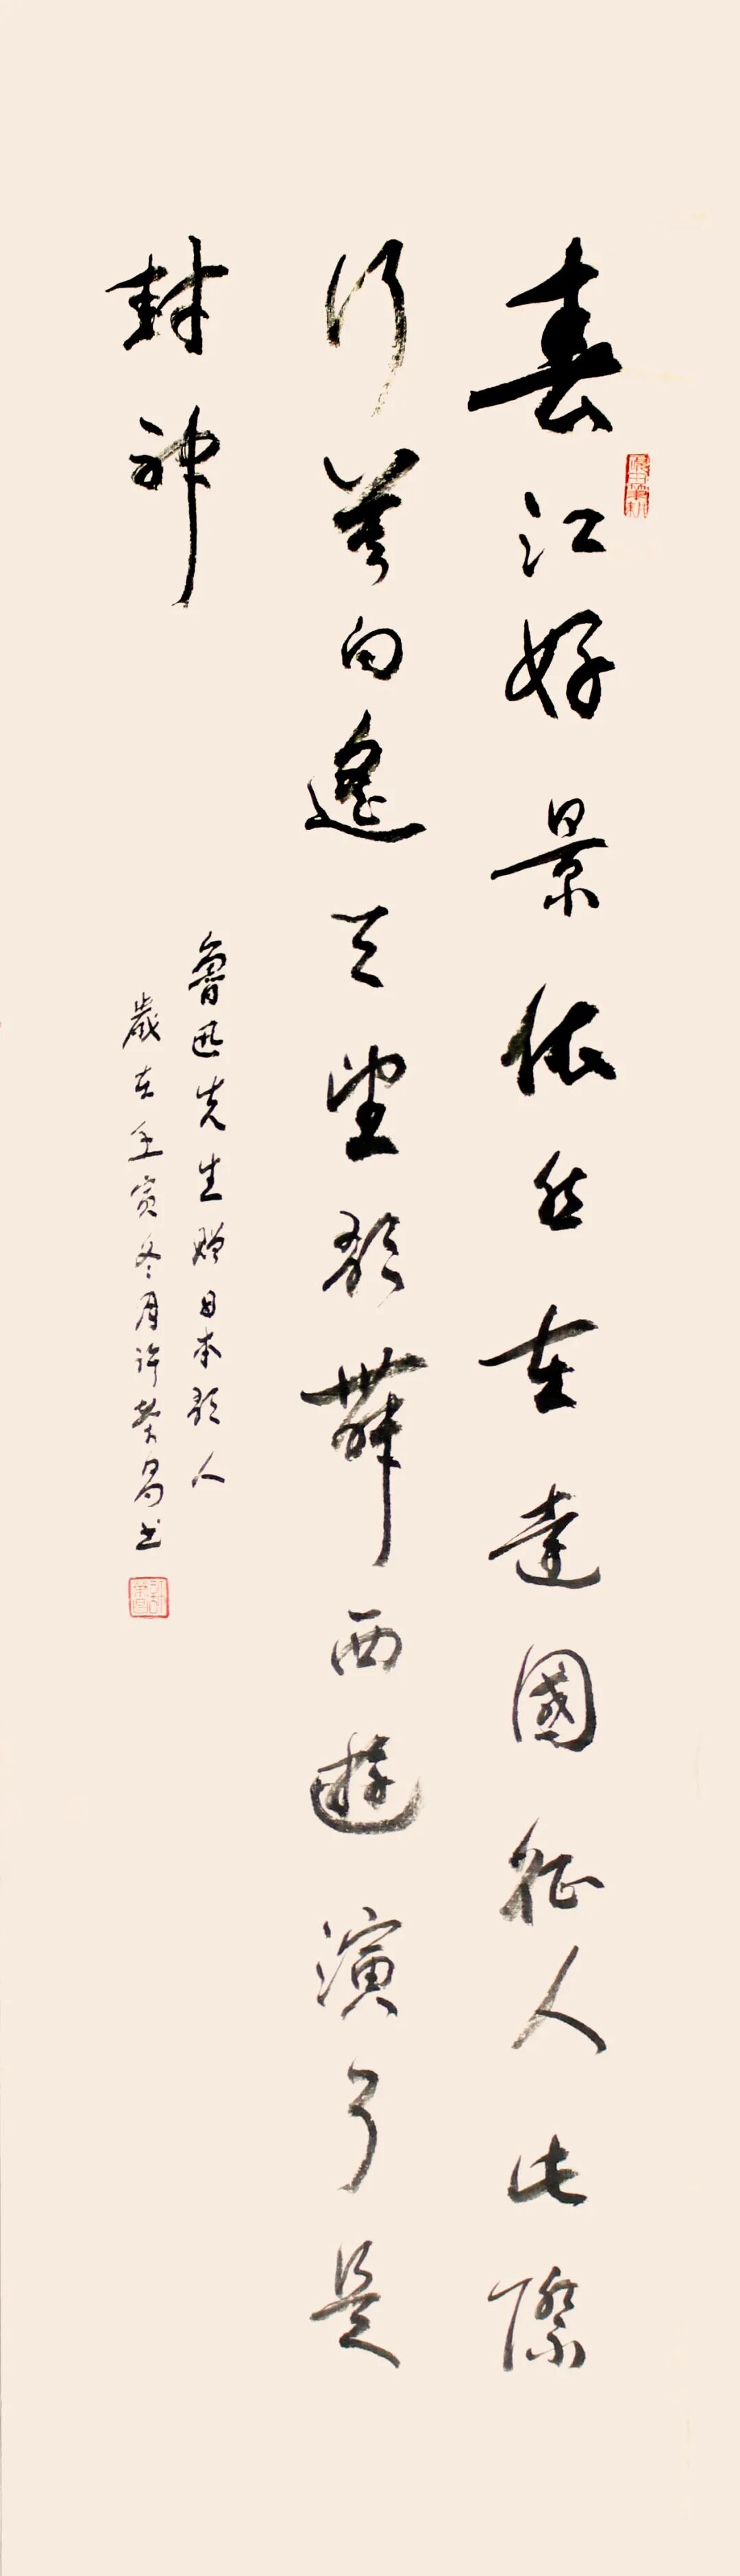 春江好景依然在遠國征人此際
行莫向遙天望歌舞西遊演了是
封神
魯迅先生贈日本歌人
歲在壬寅冬月许荣昌书